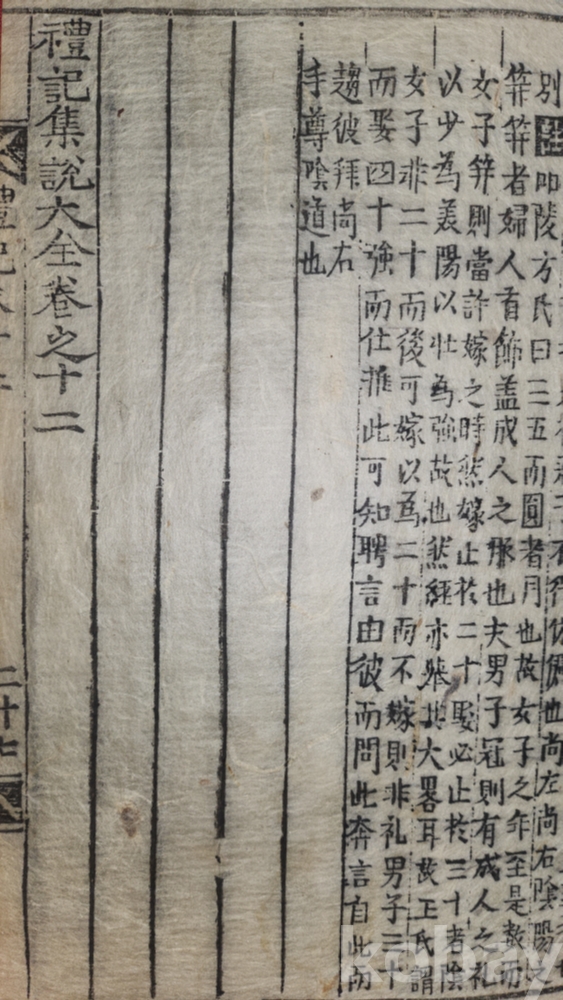 得伉儷也尚左尚右陰陽之
別註叩陵方氏曰三五而圓者月也故女子之年至是數而
筓筓者婦人首飾盖成人之服也夫男子冠則有成人之礼
女子筓則當許嫁之時然嫁止於二十娶必止於三十者陰
以少為羙陽以壯為強故也然經亦舉其大畧耳故王氏謂
女子非二十而後可嫁以為二十而不嫁則非礼男子三十
而娶四十強而仕推此可知聘言由彼而問此奔言自此而
趨彼拜尚右
手尊陰道也
禮記集說大全卷之十二
二十七